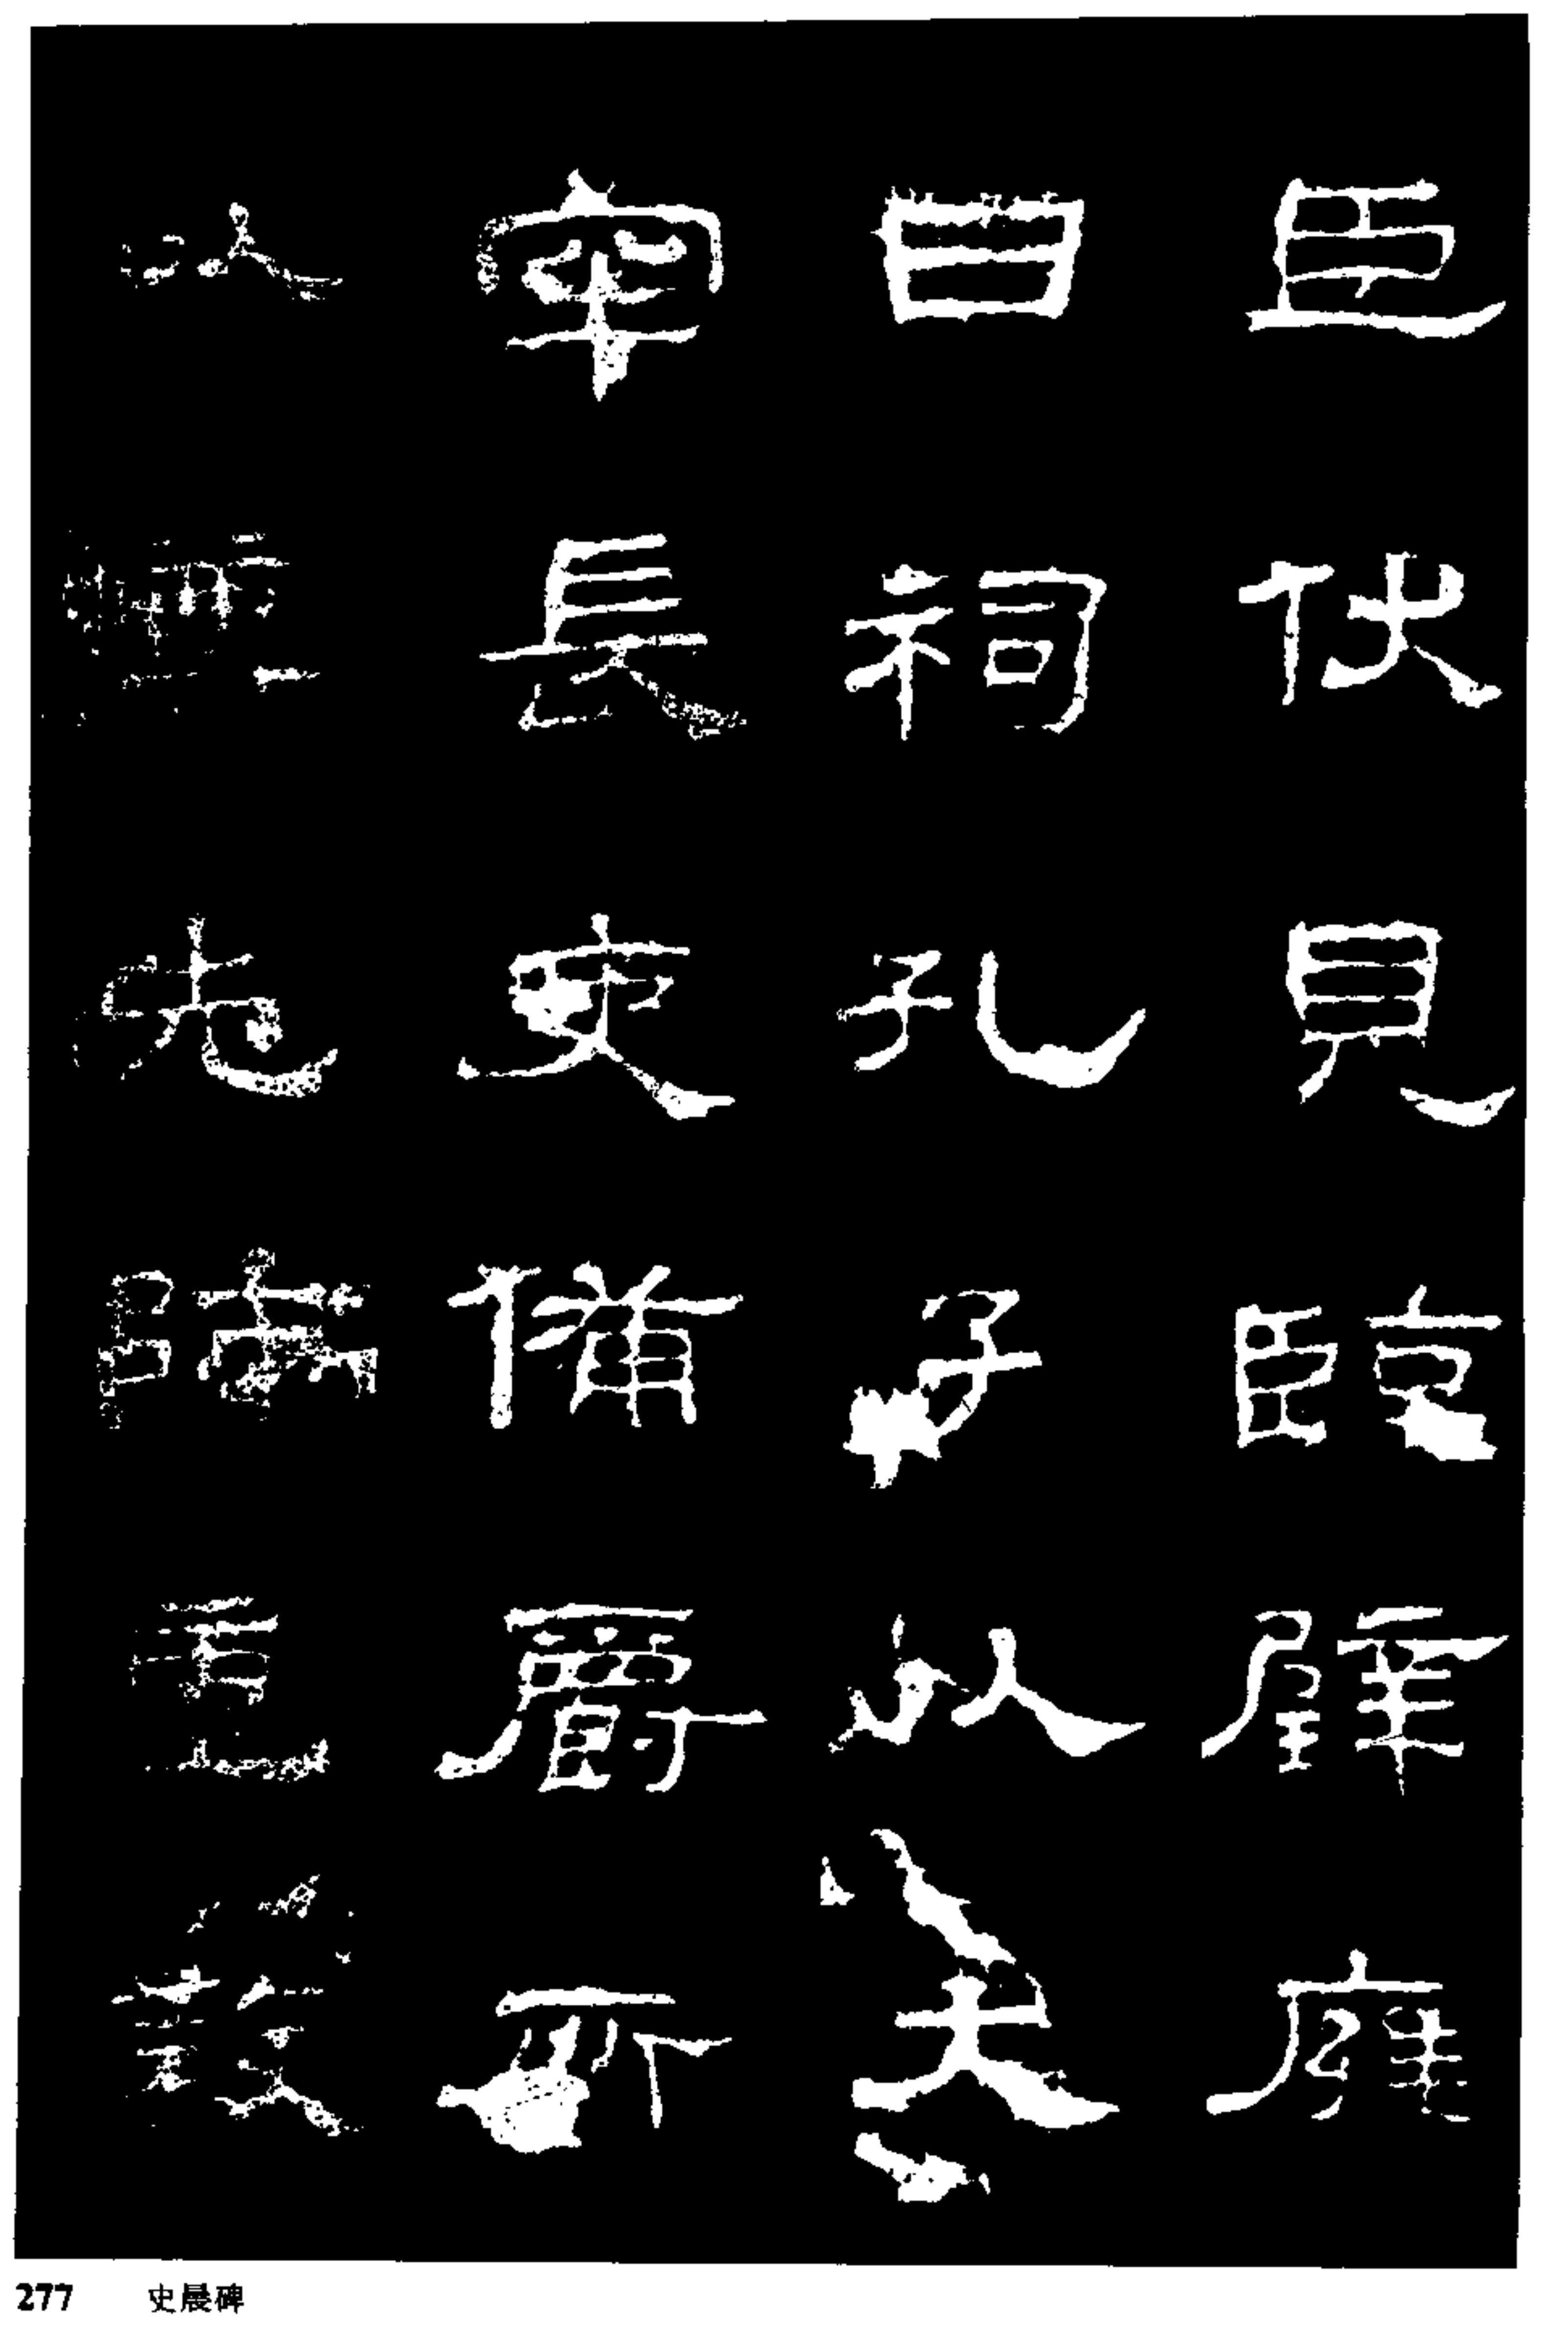 臣伏見臨辟雍
日祠孔子以大
牢長吏備爵所
以尊先師重教
277 史晨碑